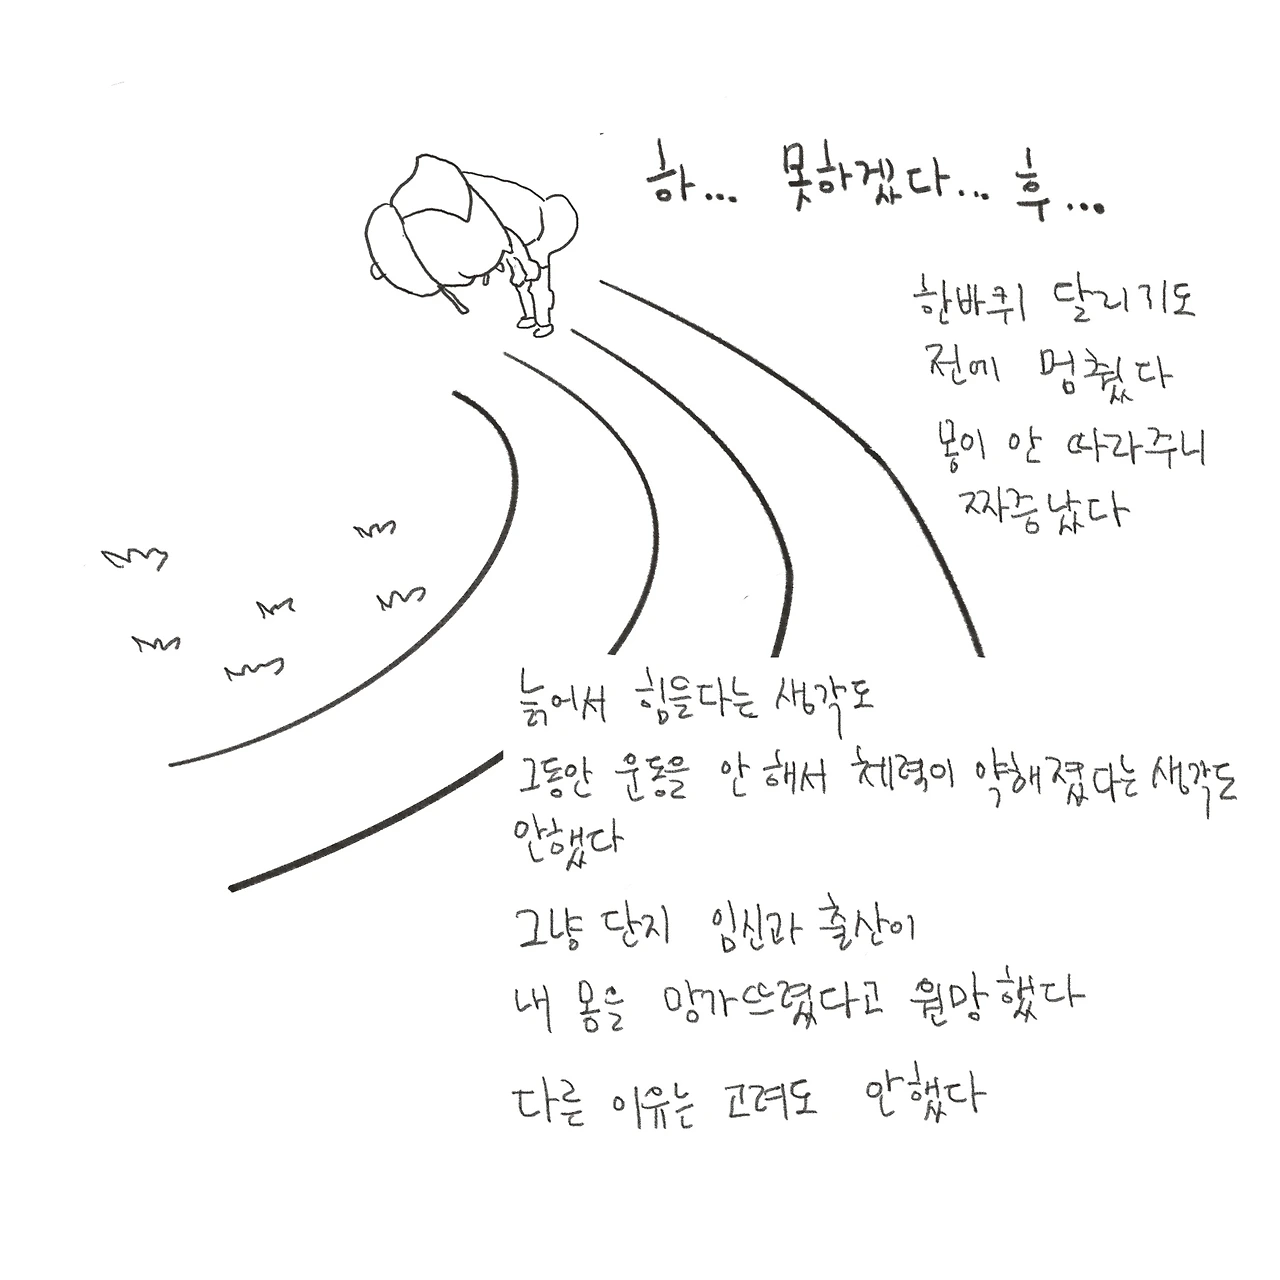 하... 못하겠다... 후...
한바퀴 달리기도
전에 멈췄다
몸이 안 따라주니
짜증났다
늙어서 힘들다는 생각도
그동안 운동을 안 해서 체력이 약해졌다는 생각도
안했다
그냥 단지 임신과 출산이
내 몸을 망가뜨렸다고 원망했다
다른 이유는 고려도 안했다